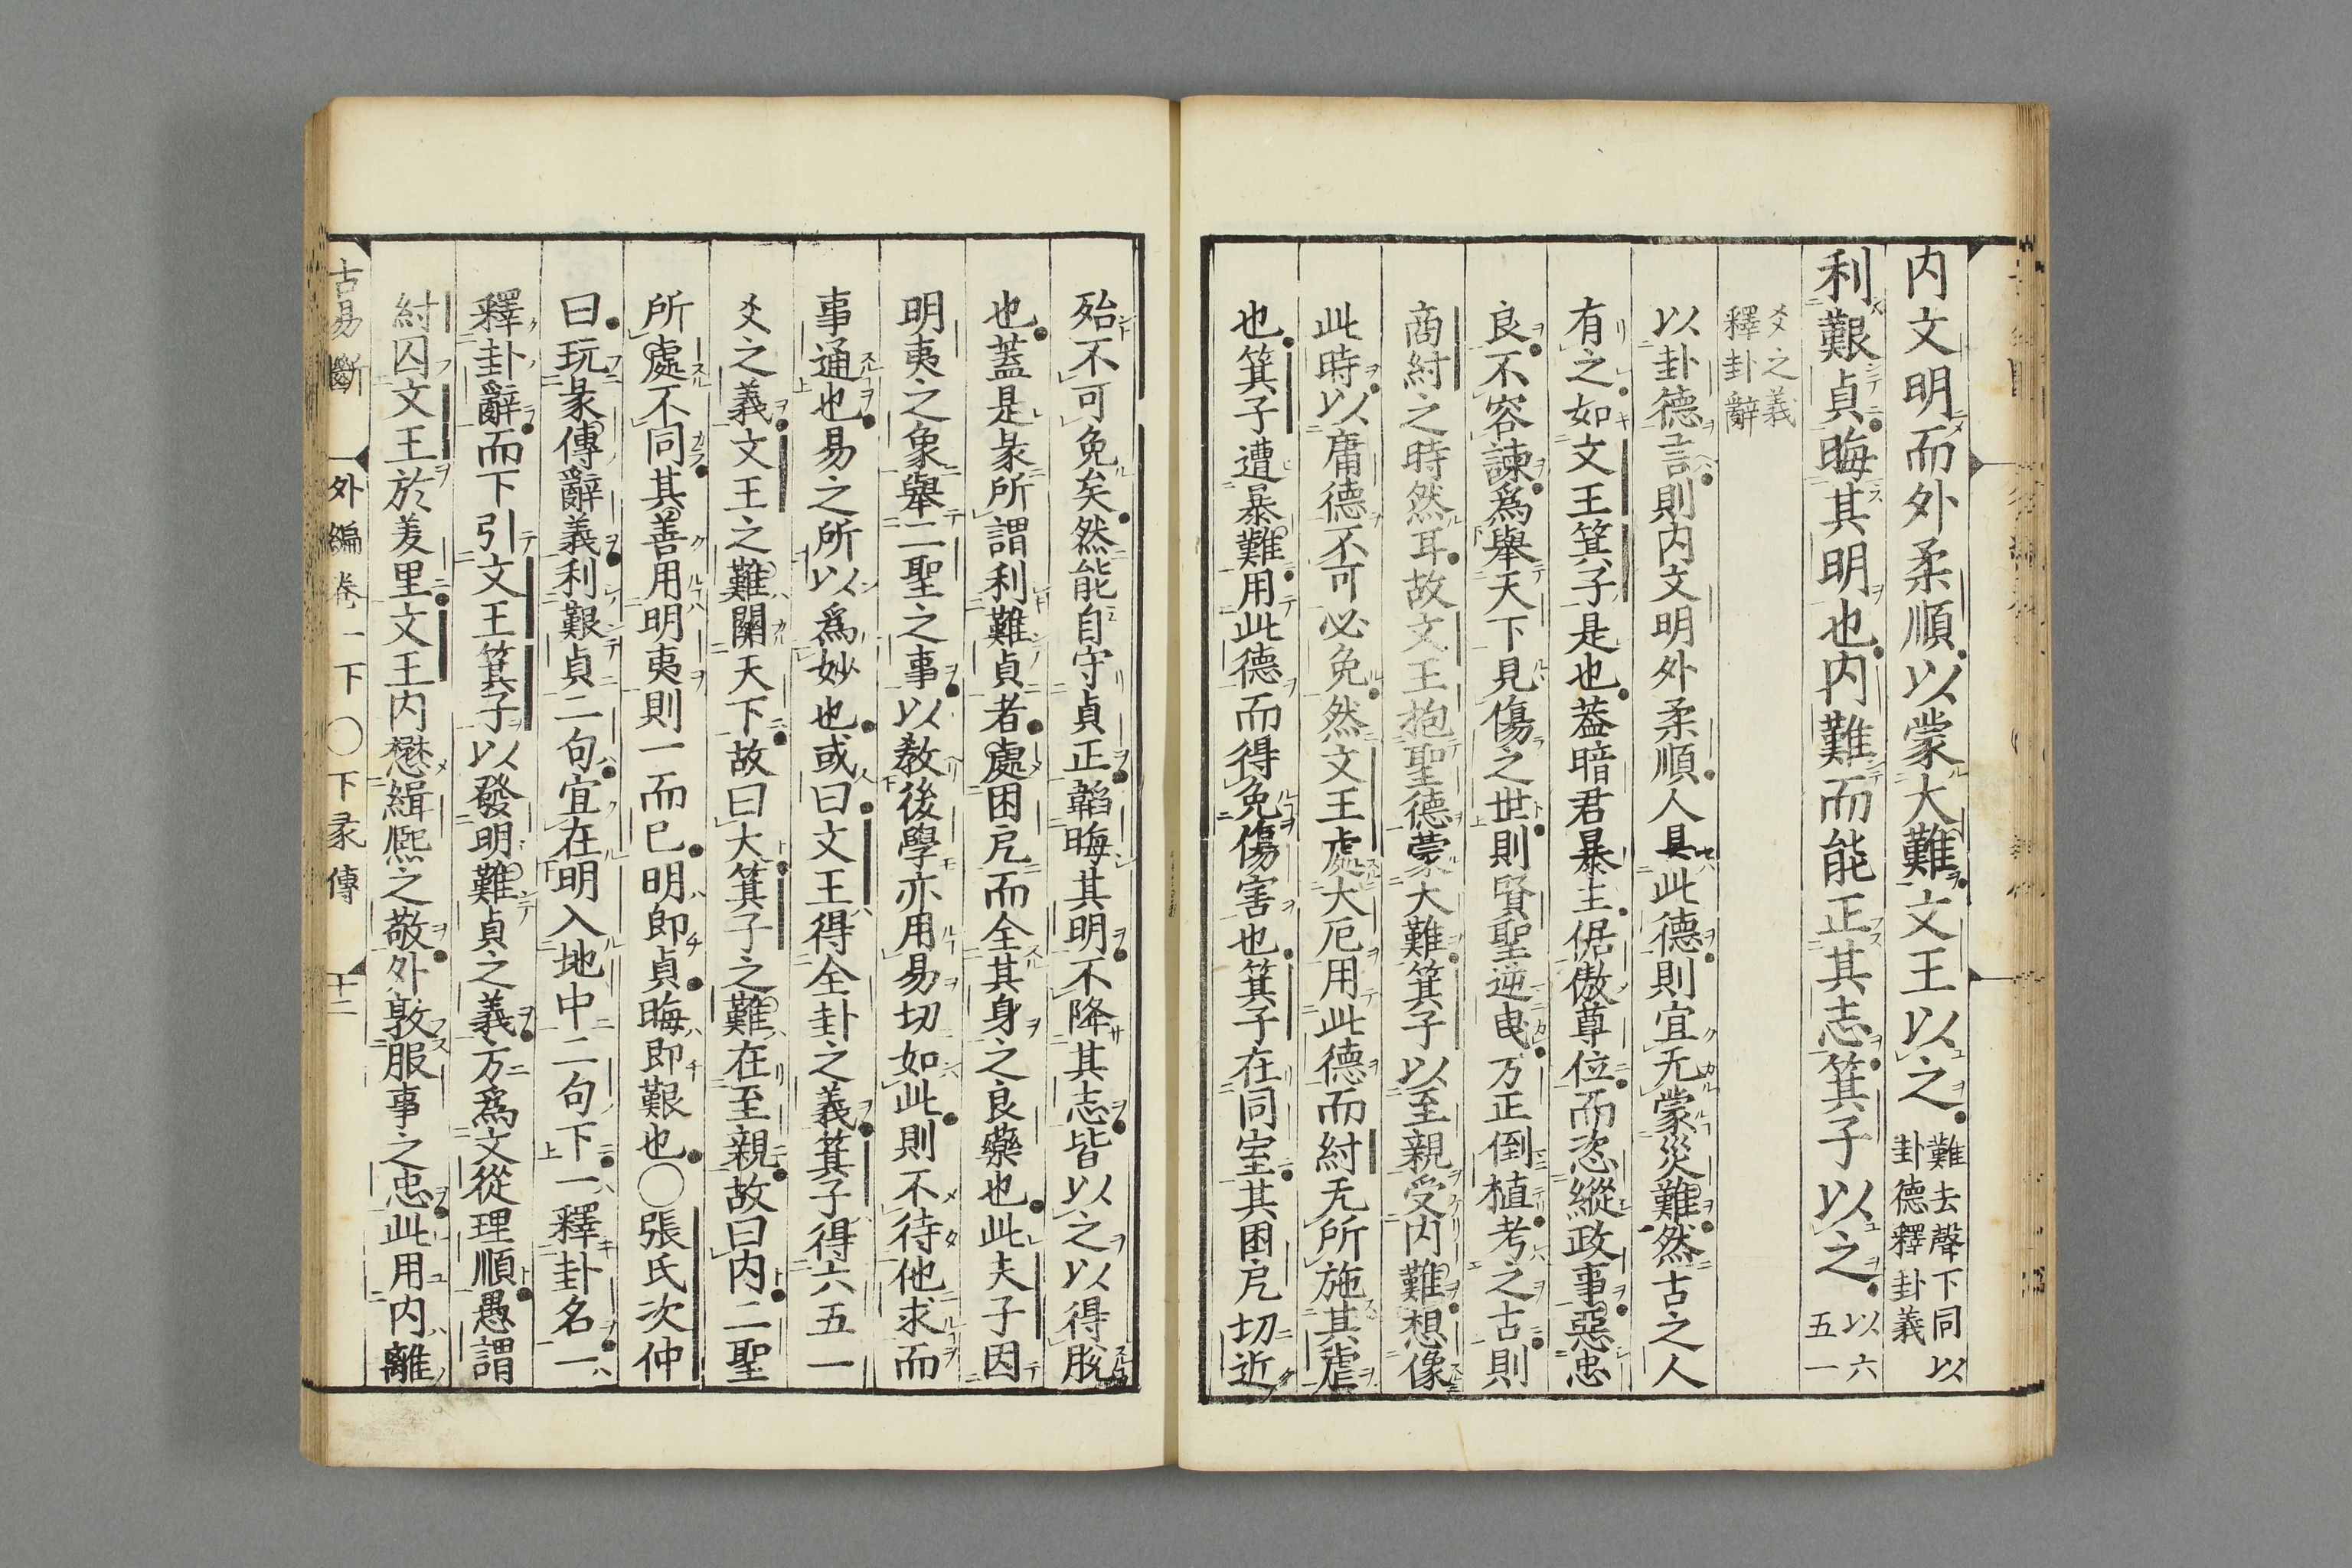 内文明而外柔順以蒙大難文王以之難去聲下同以卦德釋卦義
利艱貞晦其明也内難而能正其志箕子以之以六五一
爻之義釋卦辭
以卦德言則内文明外柔順人具此德則宜无蒙災難然古之人
有之如文王箕子是也葢暗君暴主倨傲尊位而恣縱政事惡忠
良不容諫爲舉天下見傷之世則賢聖逆曳方正倒植考之古則
商紂之時然耳故文王抱聖德蒙大難箕子以至親受内難想像
此時以庸德不可必免然文王處大厄用此德而紂无所施其虐
也箕子遭暴難用此德而得免傷害也箕子在同室其困戹切近
殆不可免矣然能自守貞正韜晦其明不降其志皆以之以得脫
也蓋是彖所謂利難貞者處困戹而全其身之良藥也此夫子因
明夷之象舉二聖之事以敎後學亦用易切如此則不待他求而
事通也易之所以爲妙也或曰文王得全卦之義箕子得六五一
爻之義文王之難關天下故曰大箕子之難在至親故曰内二聖
所處不同其善用明夷則一而已明即貞晦即艱也〇張氏次仲
曰玩彖傳辭義利艱貞二句宜在明入地中二句下一釋卦名一
釋卦辭而下引文王箕子以發明難貞之義方爲文從理順愚謂
紂囚文王於羑里文王内懋緝熙之敬外敦服事之忠此用内離
古易斷 外編卷一下〇下彖傳 十二